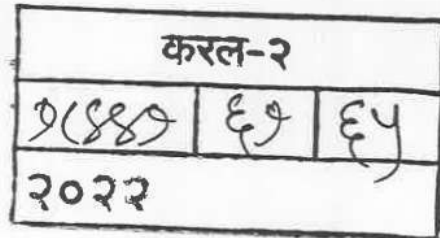 करल-२
१८४४१ ६१ ६५
२०२२